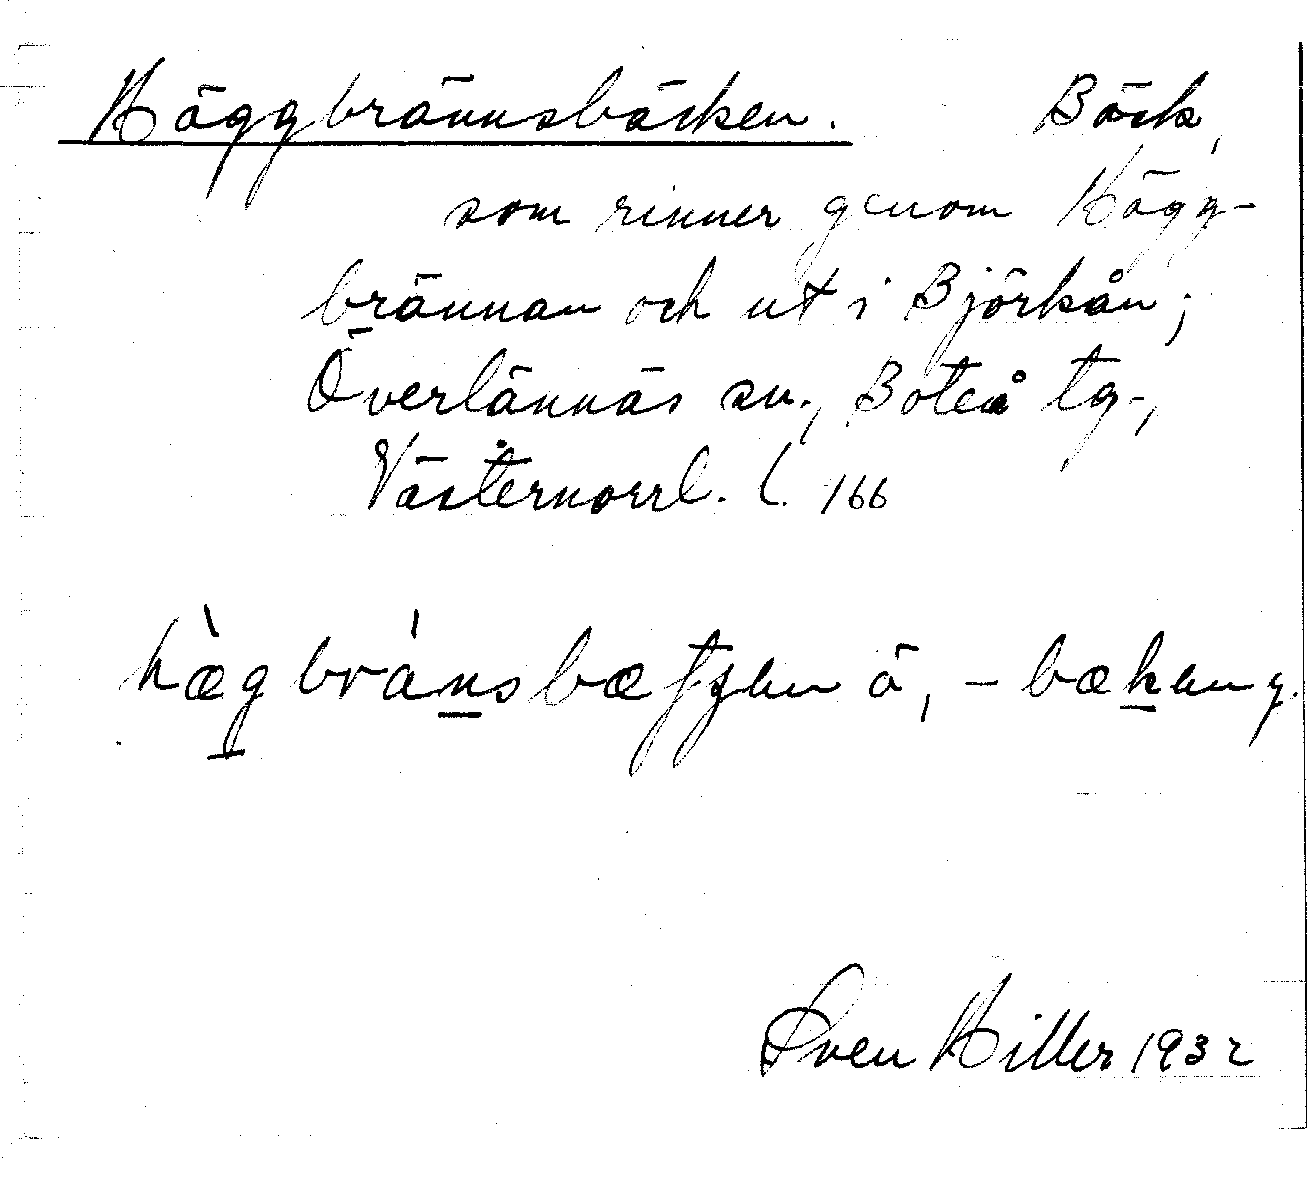 Häggbrännsbäcken. Bäck,
som rinner genom Hägg-
brännan och ut i Björkån;
Överlännäs sn., Boteå tg.,
Västernorrl. l. 166
hægbránsbæ ä, -bæken y.
Sven Hiller 1932